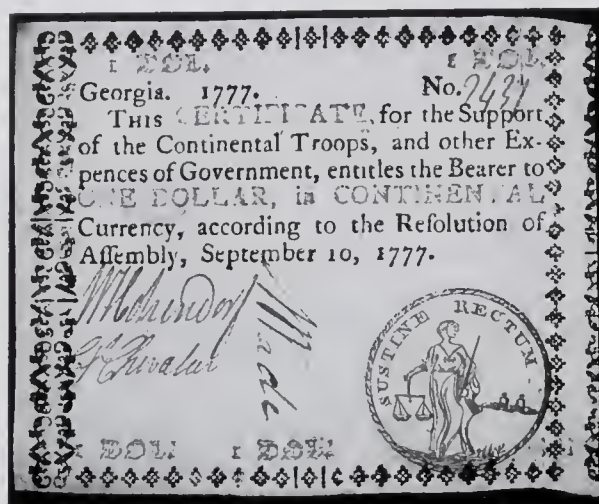 1 DOL. 1 DOL.
Georgia. 1777. No. 
THIS CERTIFICATE, for the Support
of the Continental Troops, and other Ex-
pences of Government, entitles the Bearer to
ONE DOLLAR, in CONTINENTAL
Currency, according to the Resolution of
Assembly, September 10, 1777.
Wade
SUSTINE RECTUM
1 DOL. 1 DOL.